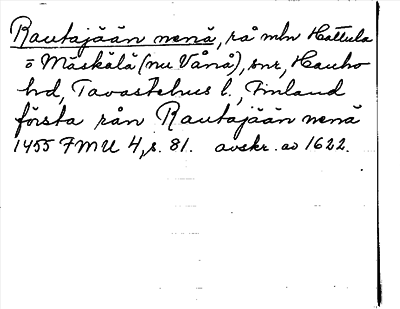 Rautajään nenä, rå mln Hattula
o Mäskälä (nu Vånå), snr, Hauho
hd, Tavastehus l., Finland
första rån Rautajään nenä
1455 FMU 4, s. 81. avskr. av 1622.